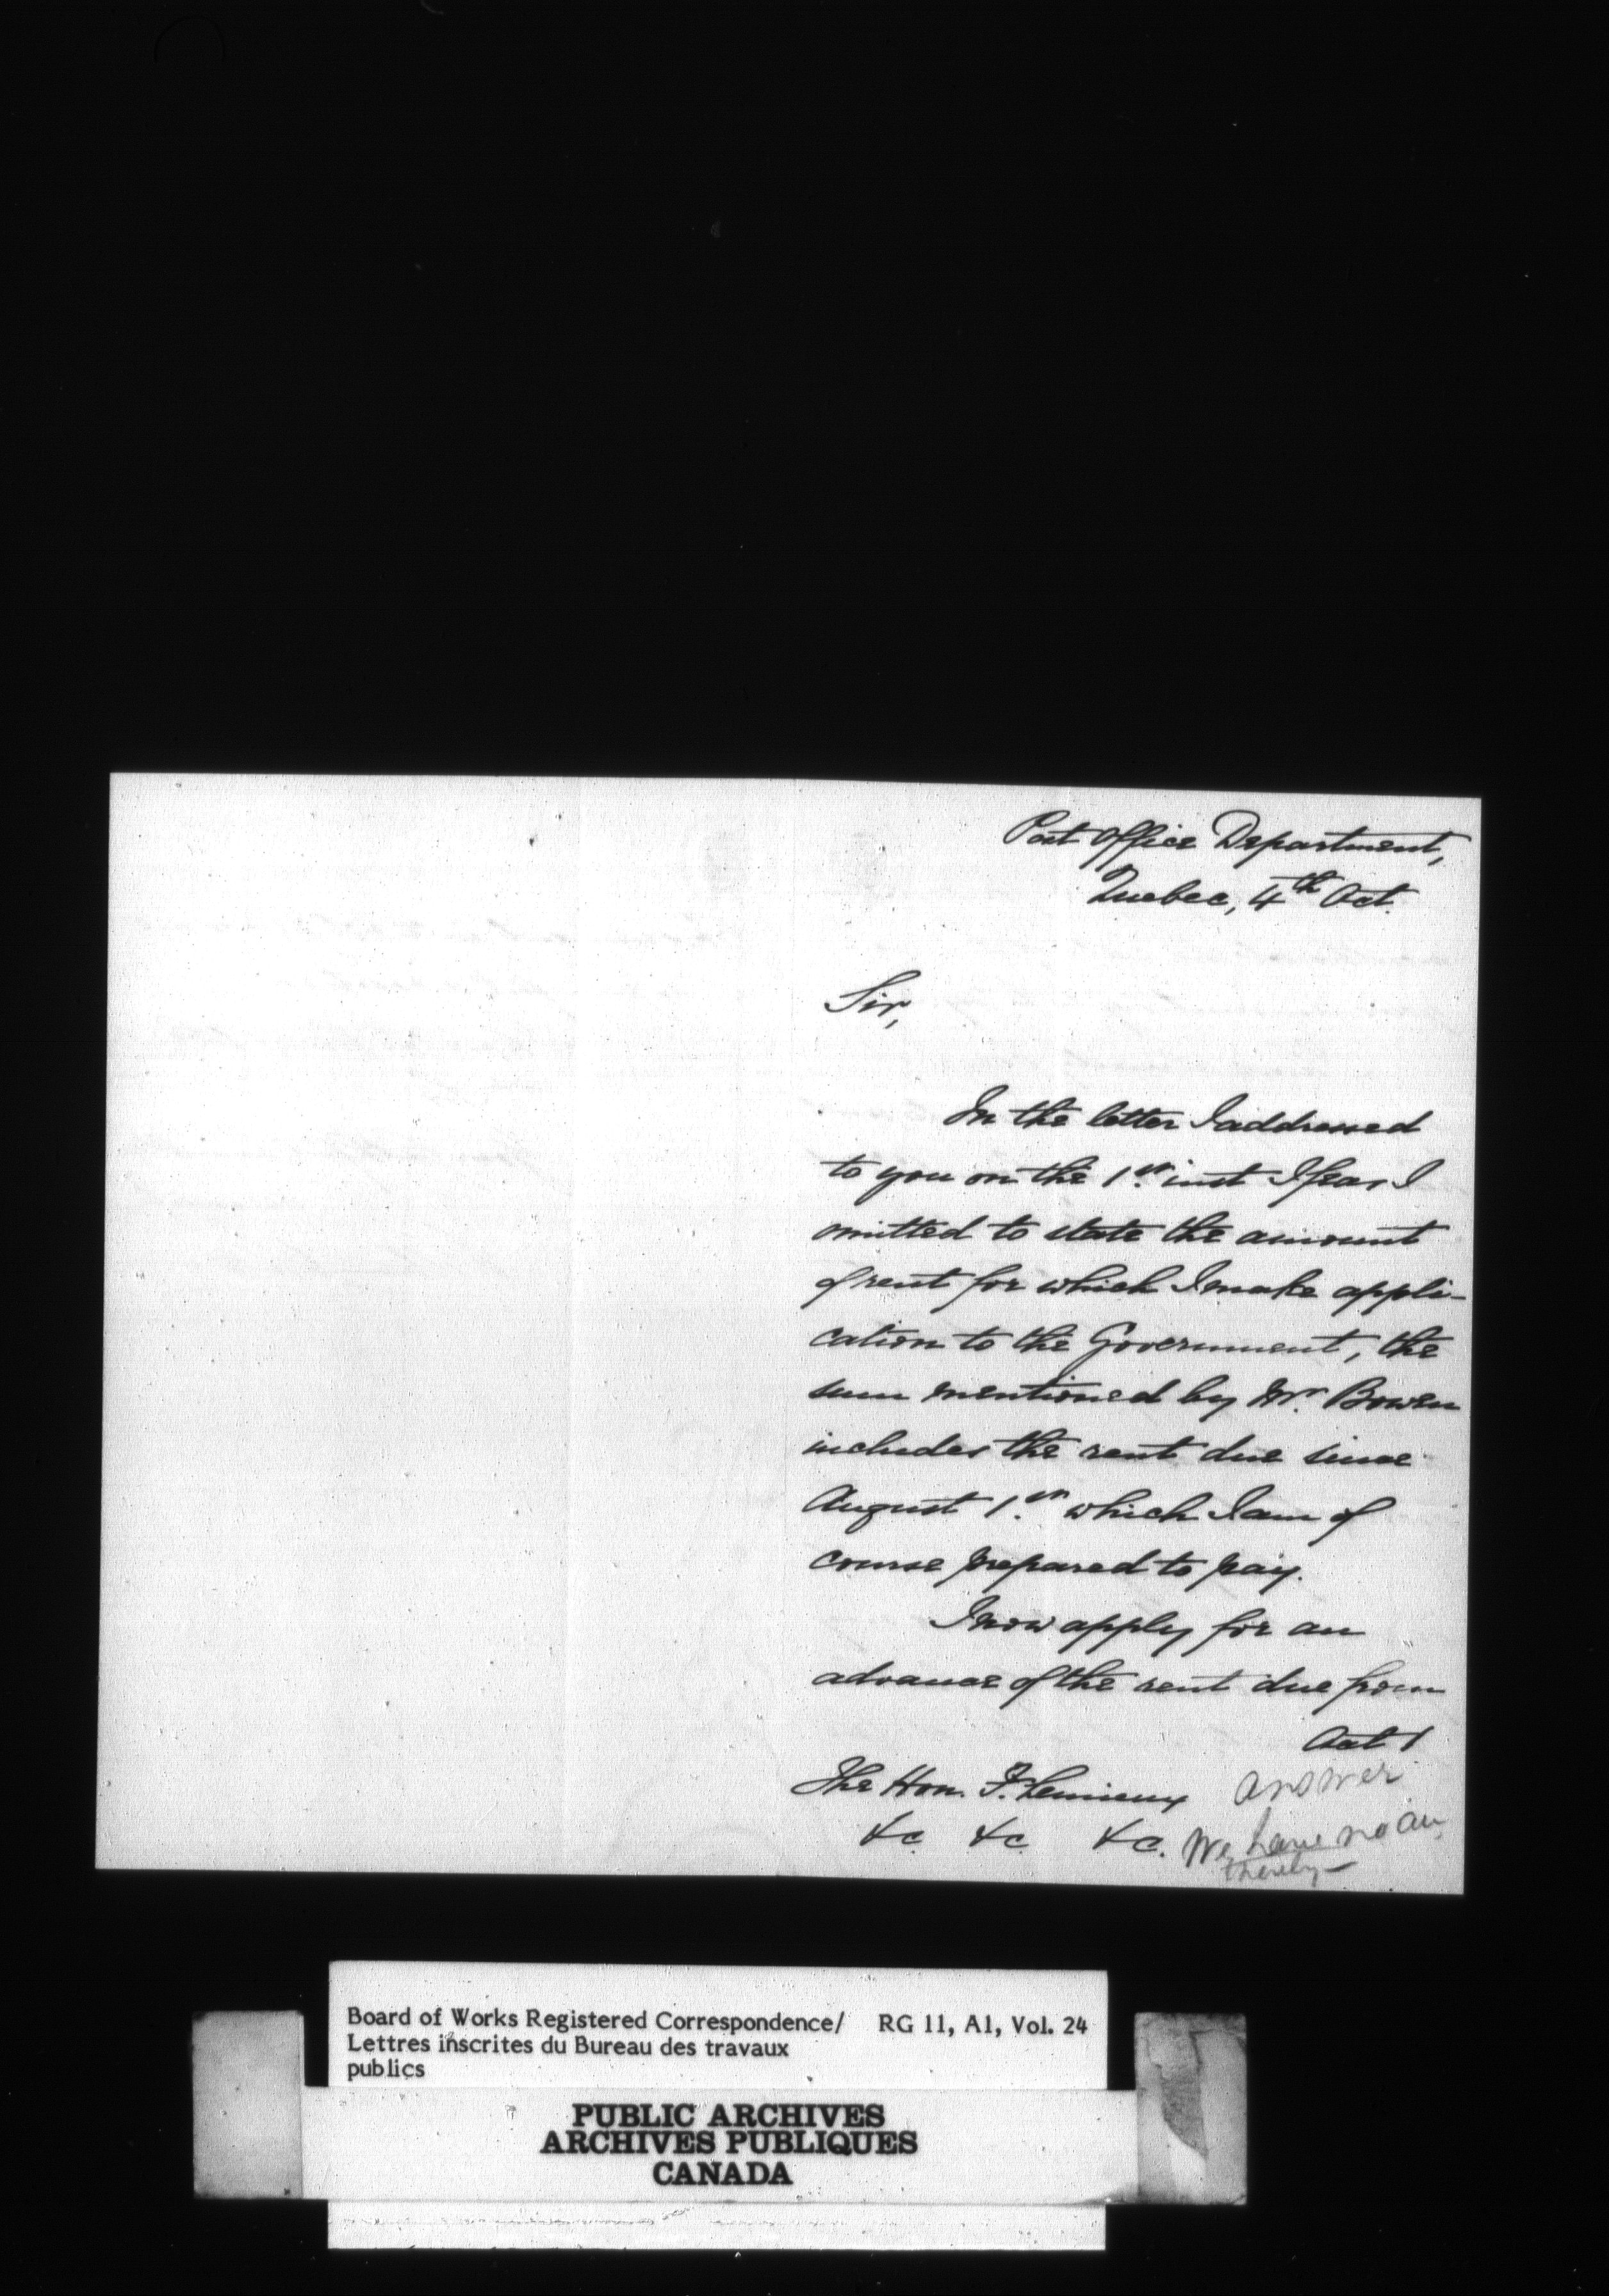 Post Office Department,
Quebec, 4th Oct.
Sir,
In the letter I addressed
to you on the 1st. inst I fear I
omitted to state the amount
of rent for which I make appli-
cation to the Government, the
sum mentioned by Mr. Bowen
includes the rent due since
August 1st. which I am of
course prepared to pay.
I now apply for an
advance of the rent due from
Oct 1
The Hon. F. Lemieux
&c. &c &c.
answer
We have no au
thority –
Board of Works Registered Correspondence/ RG 11, A1, Vol. 24
Lettres inscrites du Bureau des travaux
publics
PUBLIC ARCHIVES
ARCHIVES PUBLIQUES
CANADA